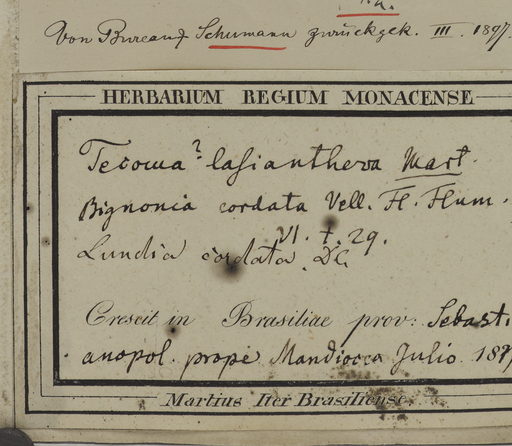 Von Bureau & Schumann zurückgek. III. 1897.
HERBARIUM REGIUM MONACENSE
Tecoma? lasianthera Mart.
Bignonia cordata Vell. Fl. Flum.
VI. t. 29.
Lundia cordata DC.
Crescit in Brasiliae prov: Sebast.
anopol. prope Mandiocca Julio
Martius Iter Brasiliense.